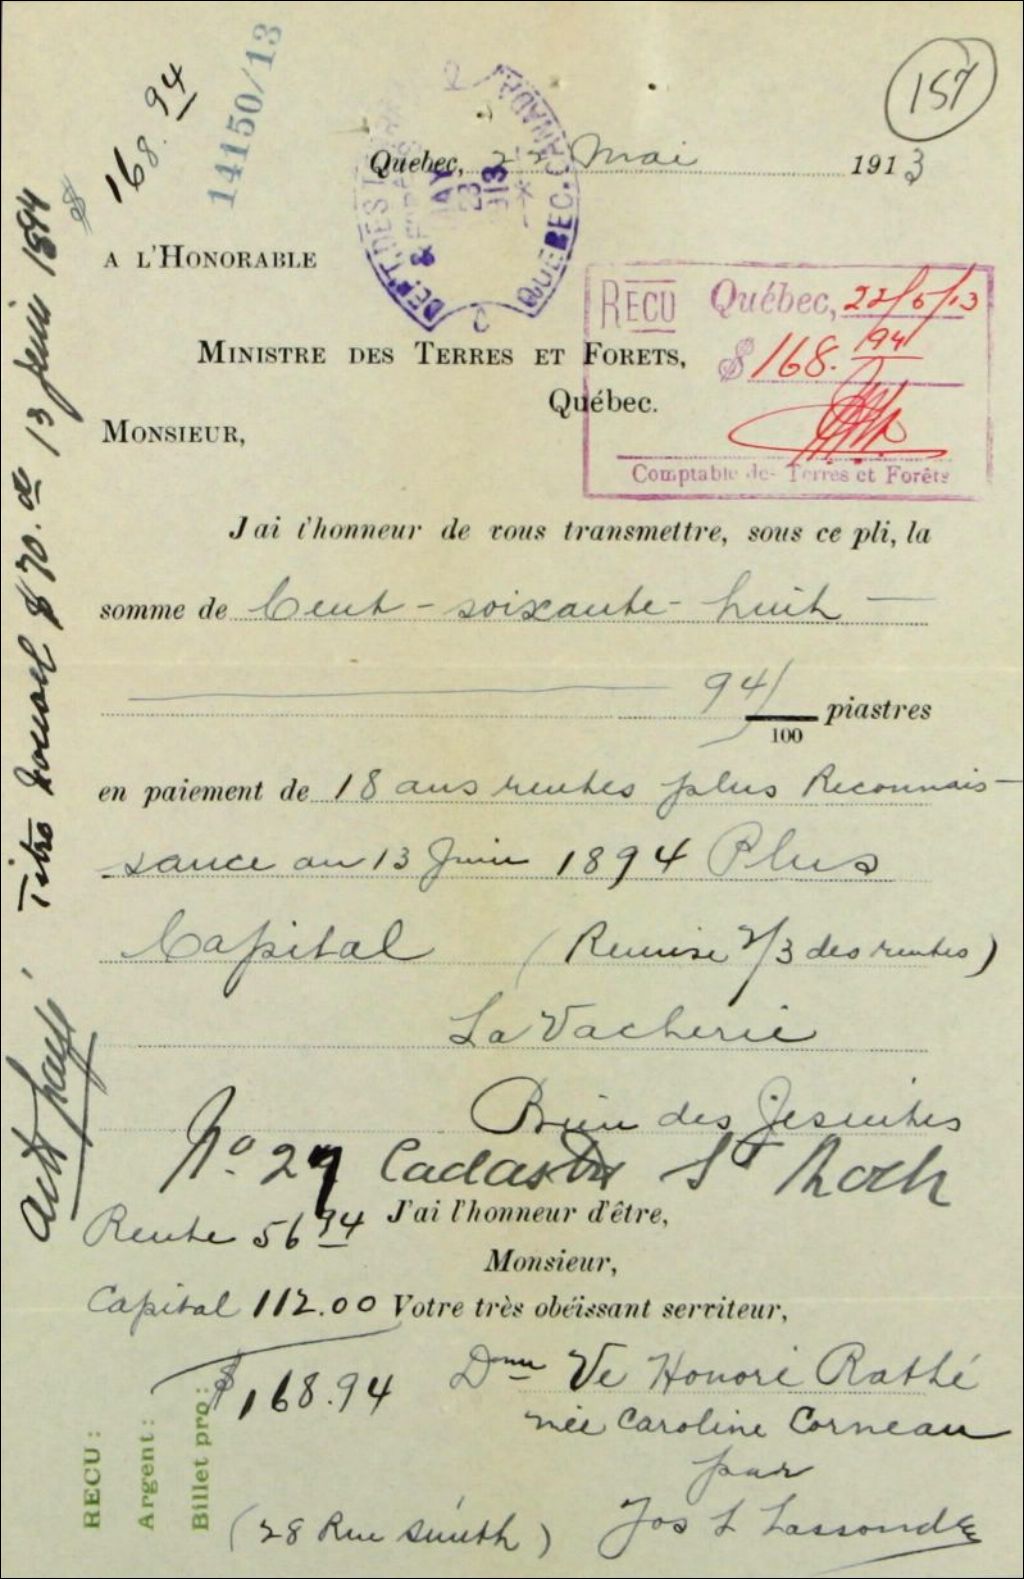 157
$ 168.94
14150/13
Quebec, 22 Mai 1913
DEP'T DES T
MAY
23
913
QUEBEC. CANADA
A L'HONORABLE
RECU Québec, 22/5/13
MINISTRE DES TERRES ET FORETS,
$ 168.94
Québec.
MONSIEUR,
Comptable des Terres et Forêts
J'ai l'honneur de vous transmettre, sous ce pli, la
somme de Cent - soixante - huit
94/100 piastres
en paiement de 18 ans rentes plus Reconnais-
sance au 13 Juin 1894 Plus
Capital (Remise 2/3 des rentes)
La Vacherie
Bien des Jesuites
No. 29 Cadastre St Roch
J'ai l'honneur d'être,
Rente 56 94
Monsieur,
Capital 112.00 Votre très obéissant serviteur,
$ 168.94
Dme Ve Honoré Rathé
née Caroline Corneau
par
Jos L Lassonde
(28 Rue Smith)
RECU :
Argent :
Billet pro :
Titre nouvel $70. de 13 juin 1894